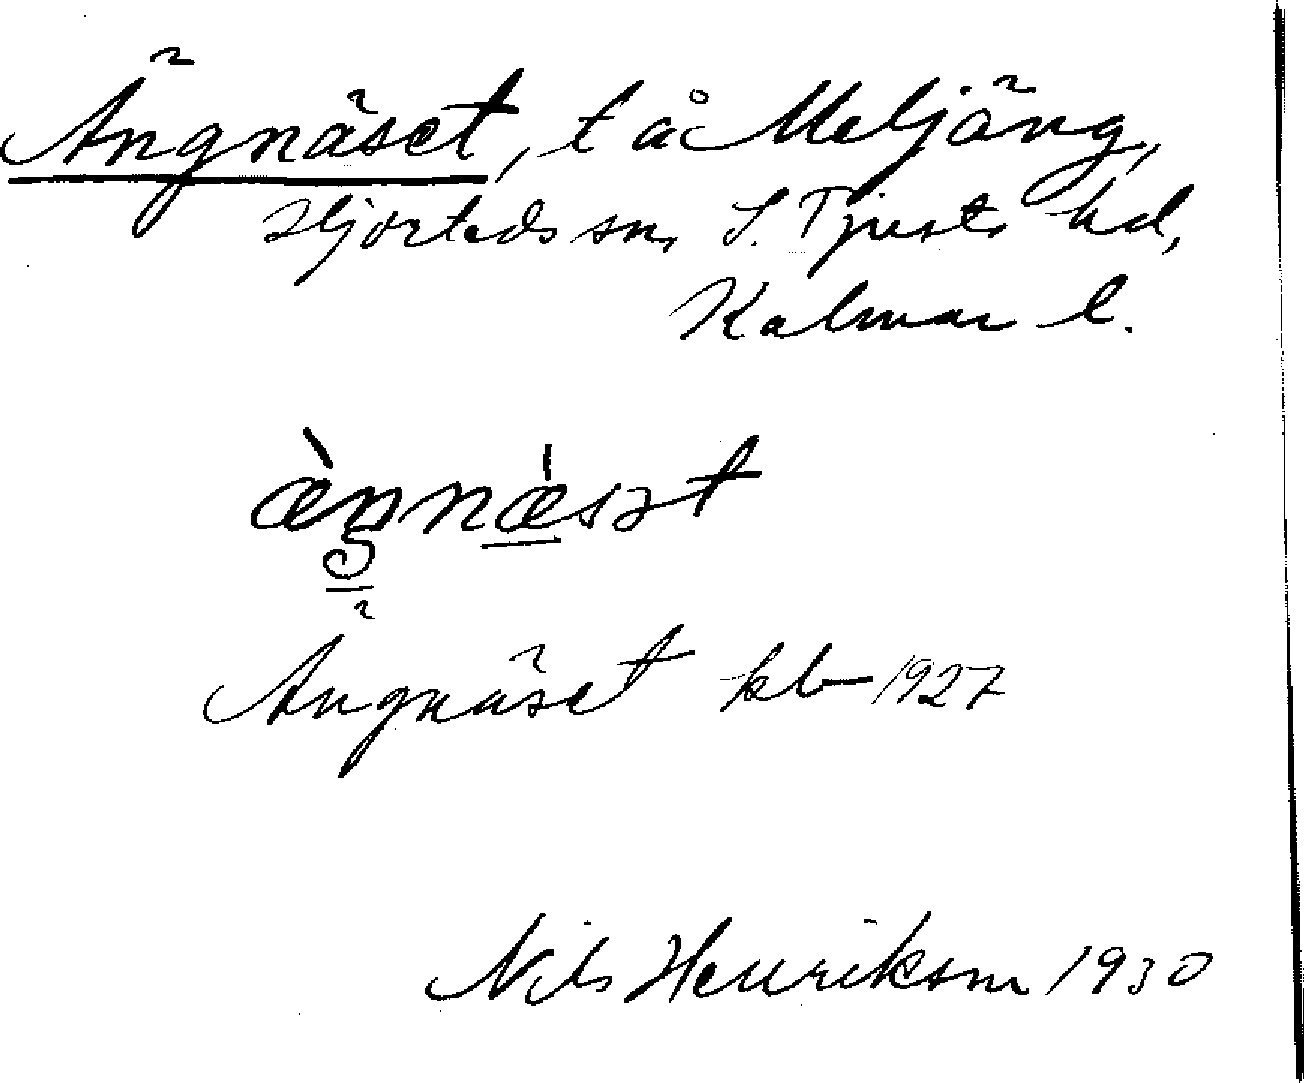 Ängnäset, t å Meljäng,
Hjorteds sn, S. Tjusts hd,
Kalmar l.
Ängnäset kb 1927
Nils Henrikson 1930